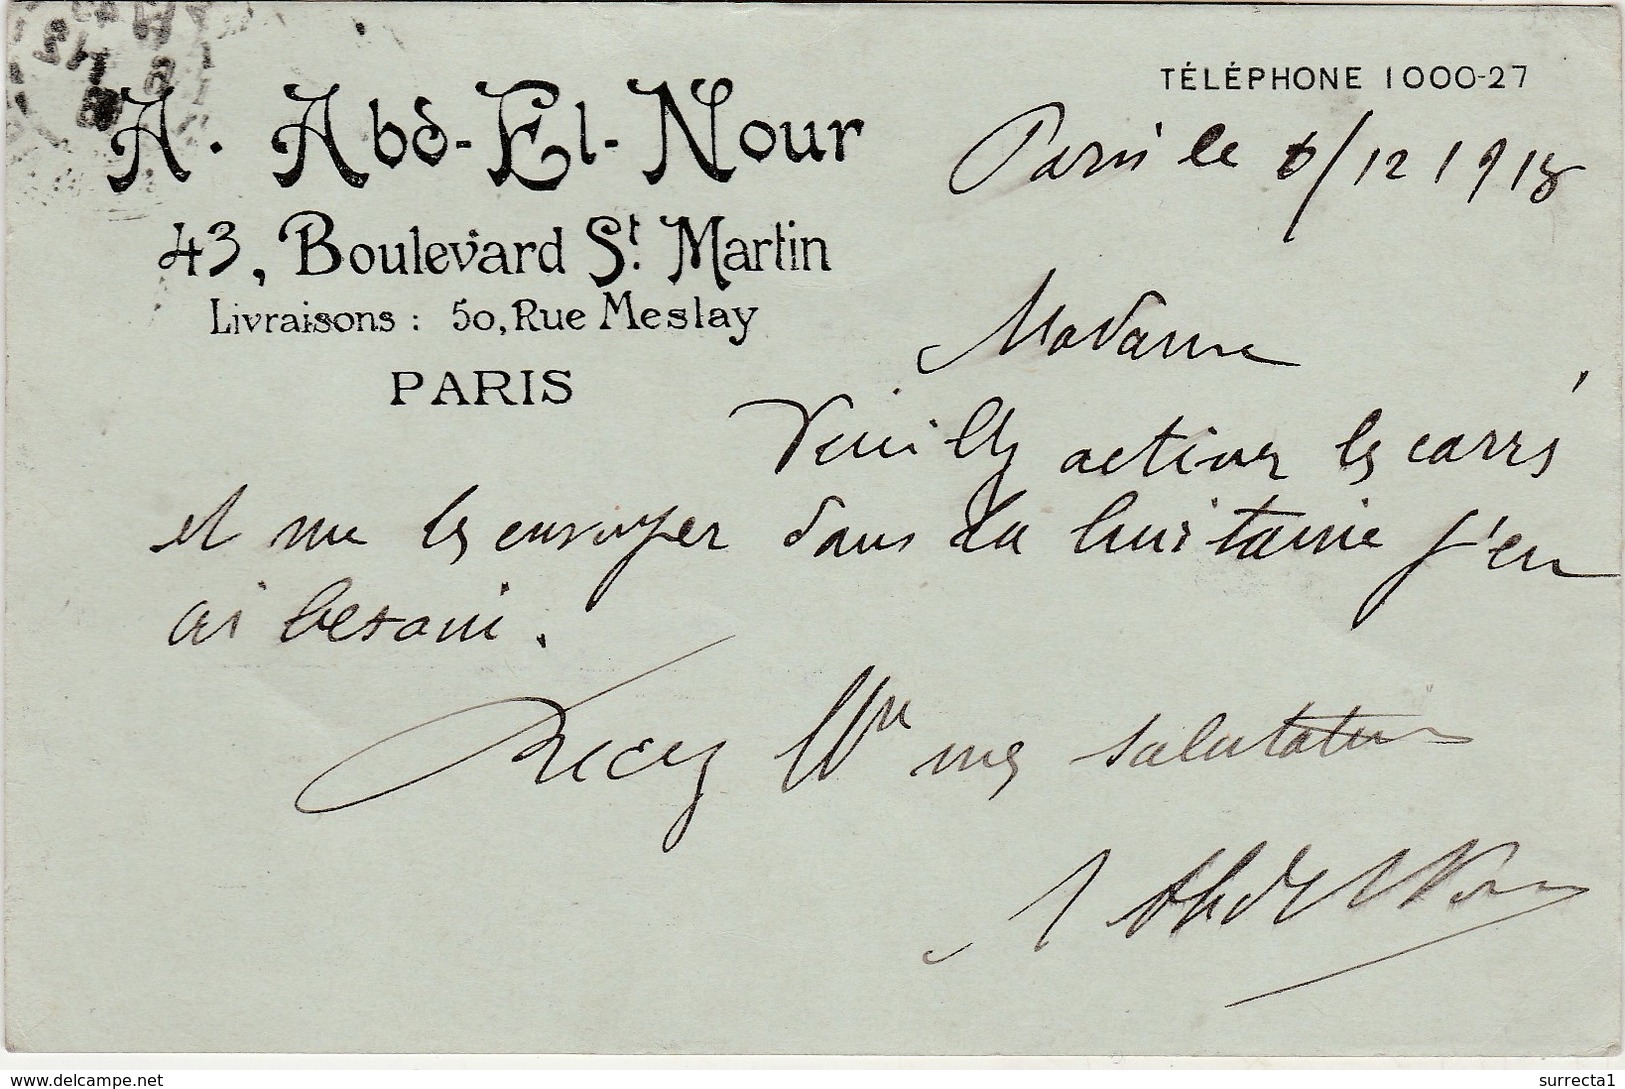 TÉLÉPHONE 1000-27
A. Abd-El-Nour
43, Boulevard St. Martin
Livraisons : 50, Rue Meslay
PARIS
Paris le 6/12 1918
Madame
Veuillez activer les carrés
et me les envoyer dans la huitaine j'en
ai besoin.
Recez Mme mes salutations
A Abd El Nour
www.delcampe.net
surrecta1